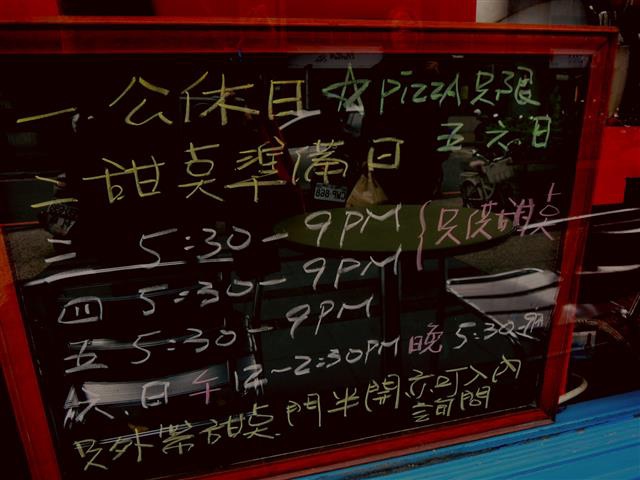 一. 公休日 ☆ pizza只限
五六日
二 甜莫準備日
三 5:30-9PM {只供甜莫
四 5:30-9PM
五 5:30-9PM
六.日 午 12-2:30PM 晚 5:30-9
只外帶甜莫 門半開亦可入內
詢問